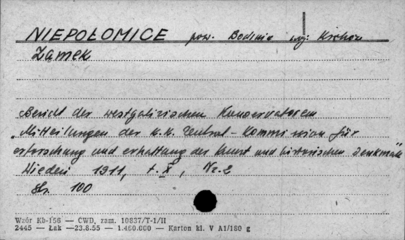 NIEPOŁOMICE pow. Bochnia woj. Kraków
Zamek
Bericht der westgalizischen Konservatoren
„Mitteilungen der K.K. Zentral-Kommission für
erforschung und erhaltung der Kunst und historischen Denkmale
Wiedeń 1911, t. X, Nr. 2
Str. 100
Wzór Kb-156 — CWD, zam. 10837/T-1/II
2445 — Łak —23.8.55 — 1.400.000 — Karton kl. V A1/180 g